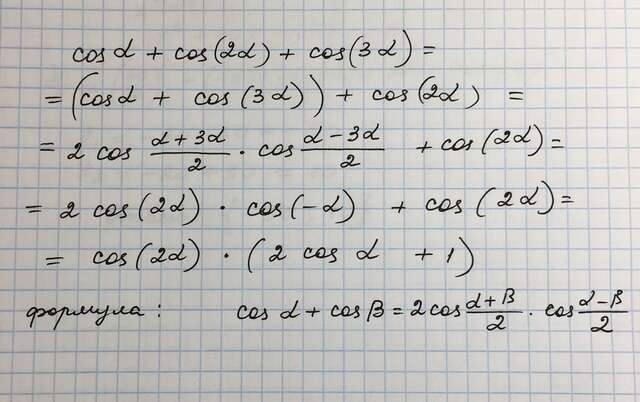 cos α + cos(2α) + cos(3α) =
= (cos α + cos(3α)) + cos(2α) =
= 2 cos (α+3α)/2 · cos (α-3α)/2 + cos(2α) =
= 2 cos(2α) · cos(-α) + cos(2α) =
= cos(2α) · (2 cos α + 1)
формула: cos α + cos β = 2 cos (α+β)/2 · cos (α-β)/2